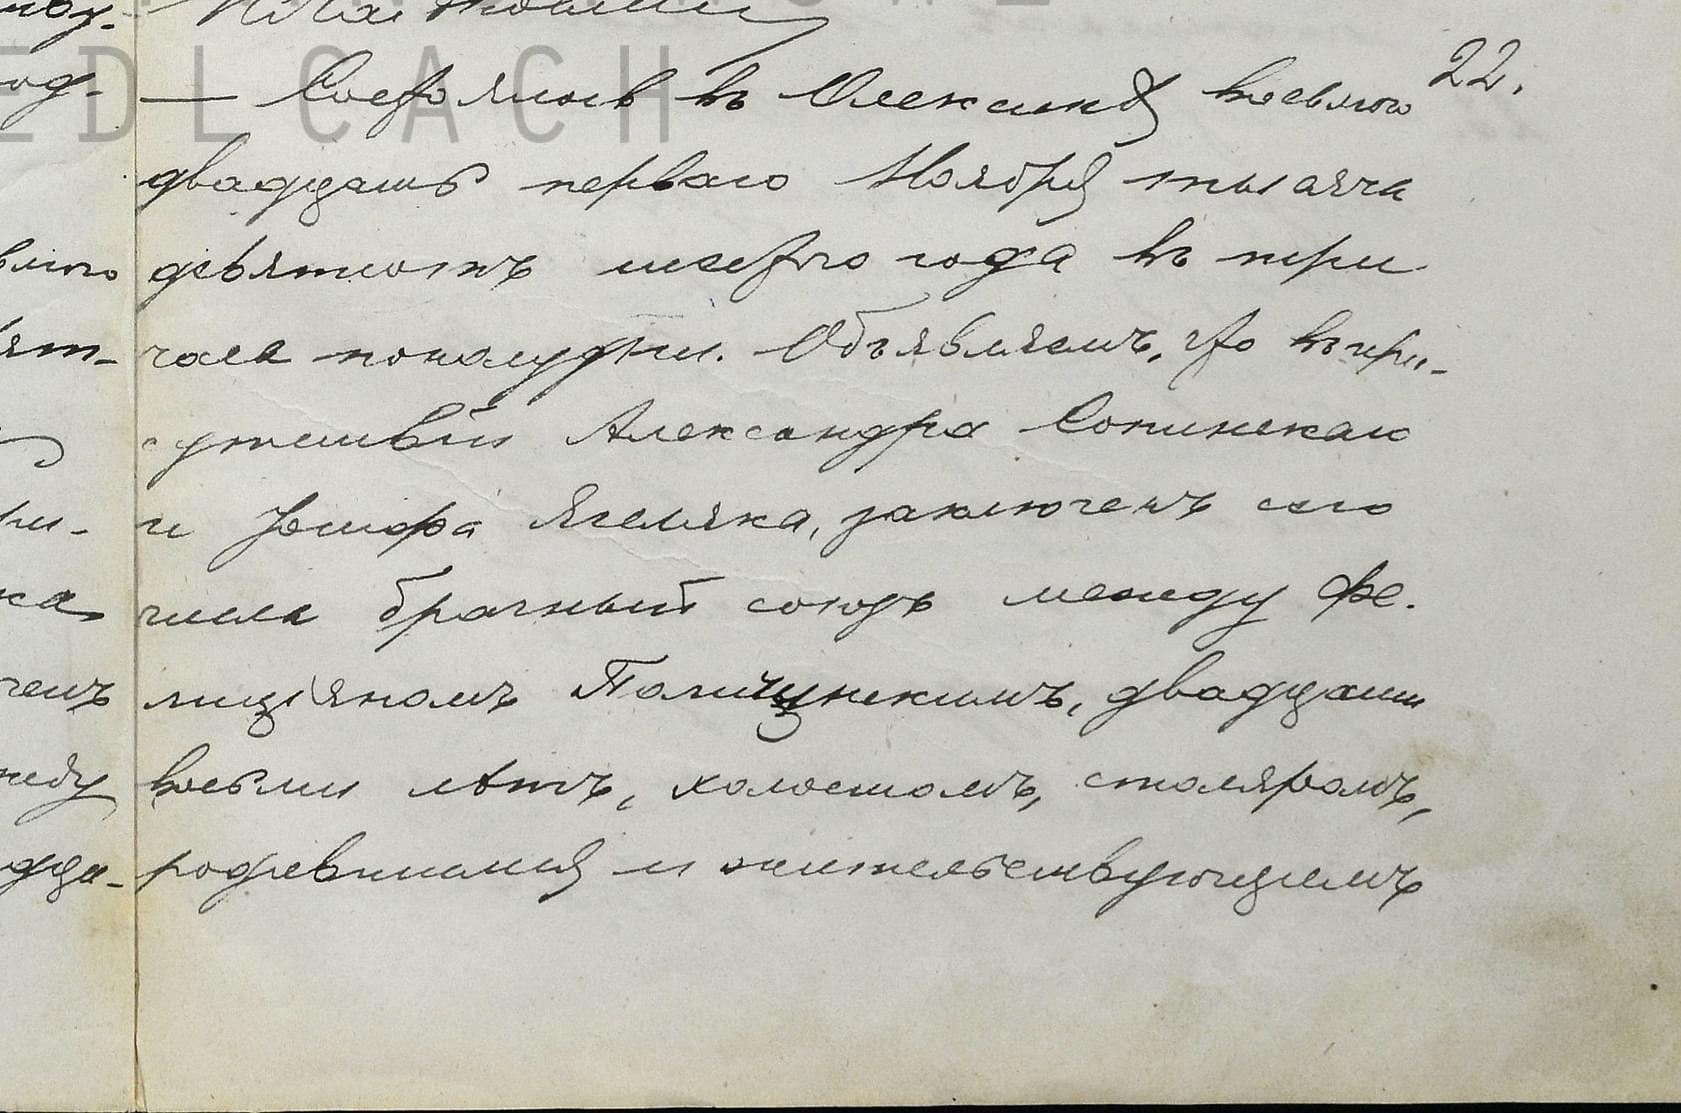 EDLCACH
22.
— Состоялось въ Олексинѣ восьмого
двадцать перваго Ноября тысяча
девятьсотъ шестого года въ три
часа пополудни. Объявляемъ, что въ при-
сутствіи Александра Сопинскаго
и Іосифа Ягеляка, заключенъ сего
числа брачный союзъ между Фе-
лиціяномъ двадцати
восьми лѣтъ, холостомъ, столяромъ,
родившимся и жительствующимъ